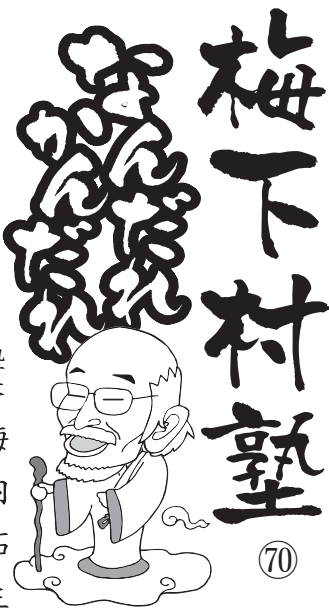 梅下村塾
70
なんだれ
かんだれ